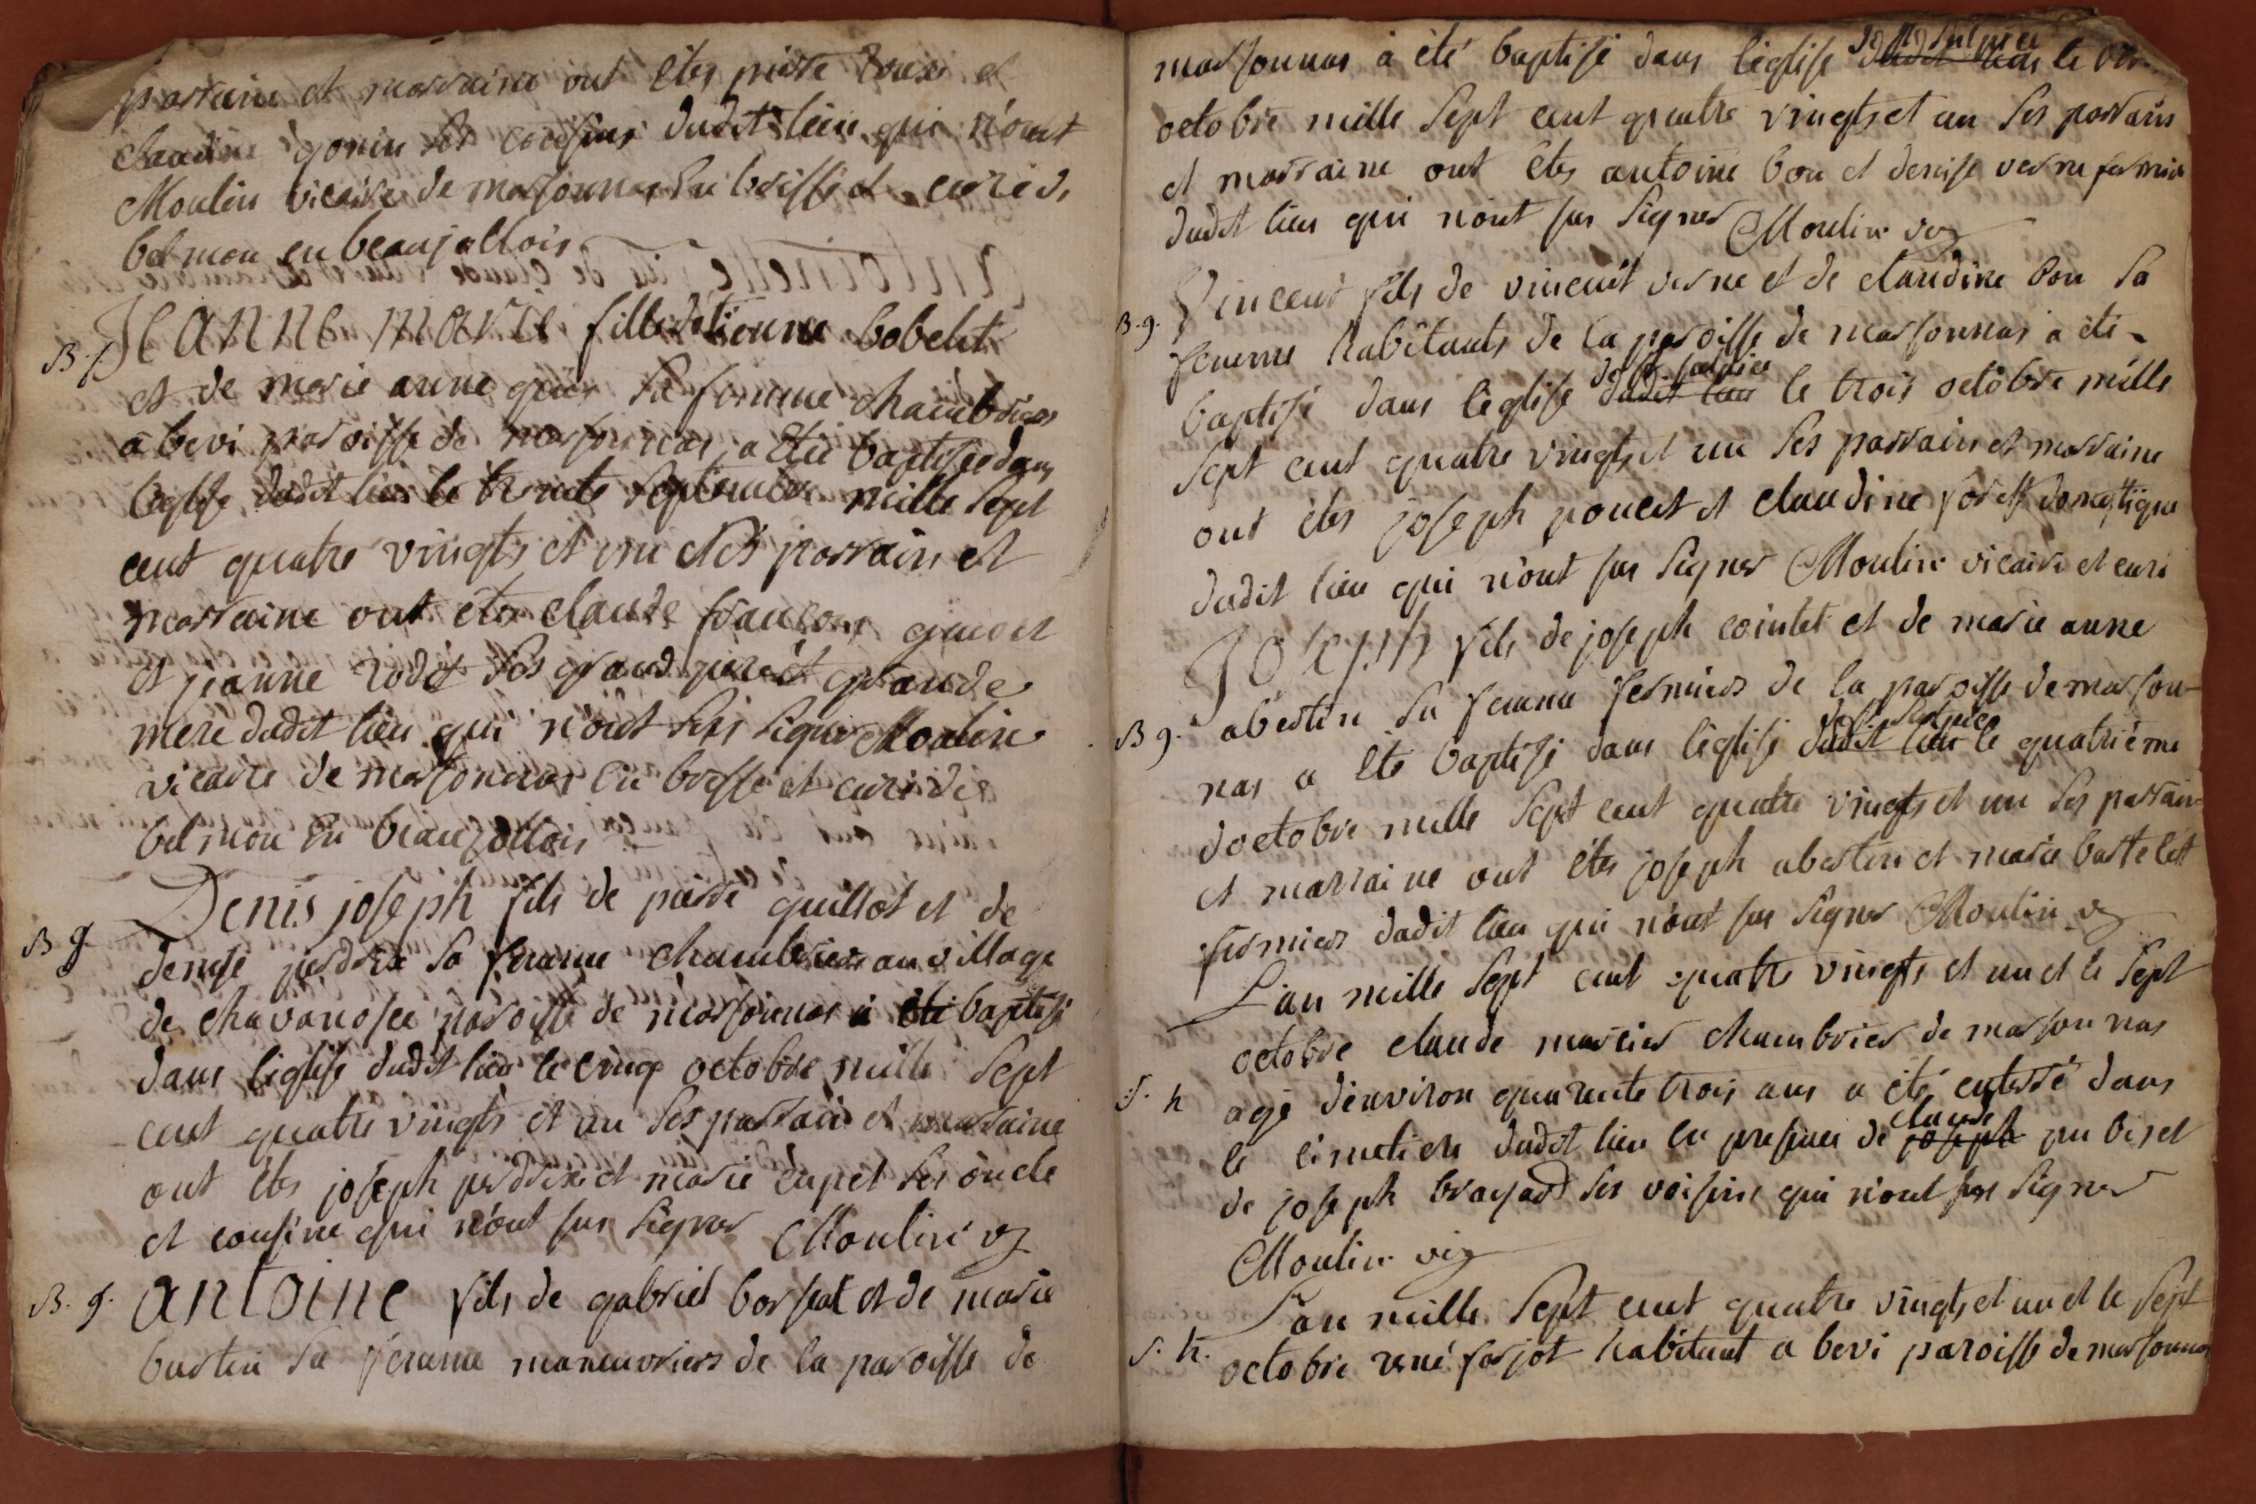 parrain et marraine ont étés pierre roux et
claudine gonin ses cousins dudit lieu qui n'ont
Moulin vicaire de marsonnas en bresse et curé de
belmon en beaujollois
B. f. Jeanne marie fille d'étienne bobelet
et de marie anne sa femme chambriers
a bevi paroisse de marsonnas a étée baptisée dans
l'eglise dudit lieu le trente septembre mille sept
cent quatre vingts et un et ses parrain et
marraine ont étés claude francois
et jeanne rodet ses grand pere et grande
mere dudit lieu qui n'ont sus signer Moulin
vicaire de marsonnas en bresse et curé de
belmon en beaujollois
B g Denis joseph fils de pierre guillot et de
denise perdrix sa femme chambriers au village
de chavanosee paroisse de marsonnas a été baptisé
dans l'eglise dudit lieu le cinq octobre mille sept
cent quatre vingts et un ses parrain et marraine
ont étés joseph perdrix et marie ses oncle
et cousine qui n'ont sus signer Moulin v
B. g. antoine fils de gabriel borsat et de marie
burtin sa femme maneuvriers de la paroisse de
marsonnas à été baptisé dans l'eglise dudit lieu de St Sulpice le
octobre mille sept cent quatre vingts et un ses parrain
et marraine ont étés antoine bon et denise verne fermier
dudit lieu qui n'ont sus signer Moulin vic
B. g. Vincent fils de vincent verne et de claudine bon sa
femme habitants de la paroisse de marsonnas a été
baptisé dans l'eglise dudit lieu de St Sulpice le trois octobre mille
sept cent quatre vingts et un ses parrain et marraine
ont étés joseph poncet et claudine domestique
dudit lieu qui n'ont sus signer Moulin vicaire et curé
Joseph fils de joseph cointet et de marie anne
B g. abertin sa femme fermiers de la paroisse de marson-
nas a été baptisé dans l'eglise dudit lieu de St Sulpice le quatrième
d'octobre mille sept cent quatre vingts et un ses parrain
et marraine ont étés joseph abertin et marie bartelet
fermiers dudit lieu qui n'ont sus signer Moulin v
L'an mille sept cent quatre vingts et un et le sept
octobre claude mercier chambrier de marsonnas
S. h agé d'environ quarente trois ans a été enterré dans
le cimetiere dudit lieu en presence de joseph claude pubiset
de joseph brayard ses voisins qui n'ont sus signer
Moulin vic
L'an mille sept cent quatre vingts et un et le sept
S. h. octobre rené forjot habitant a bevi paroisse de marsonnas